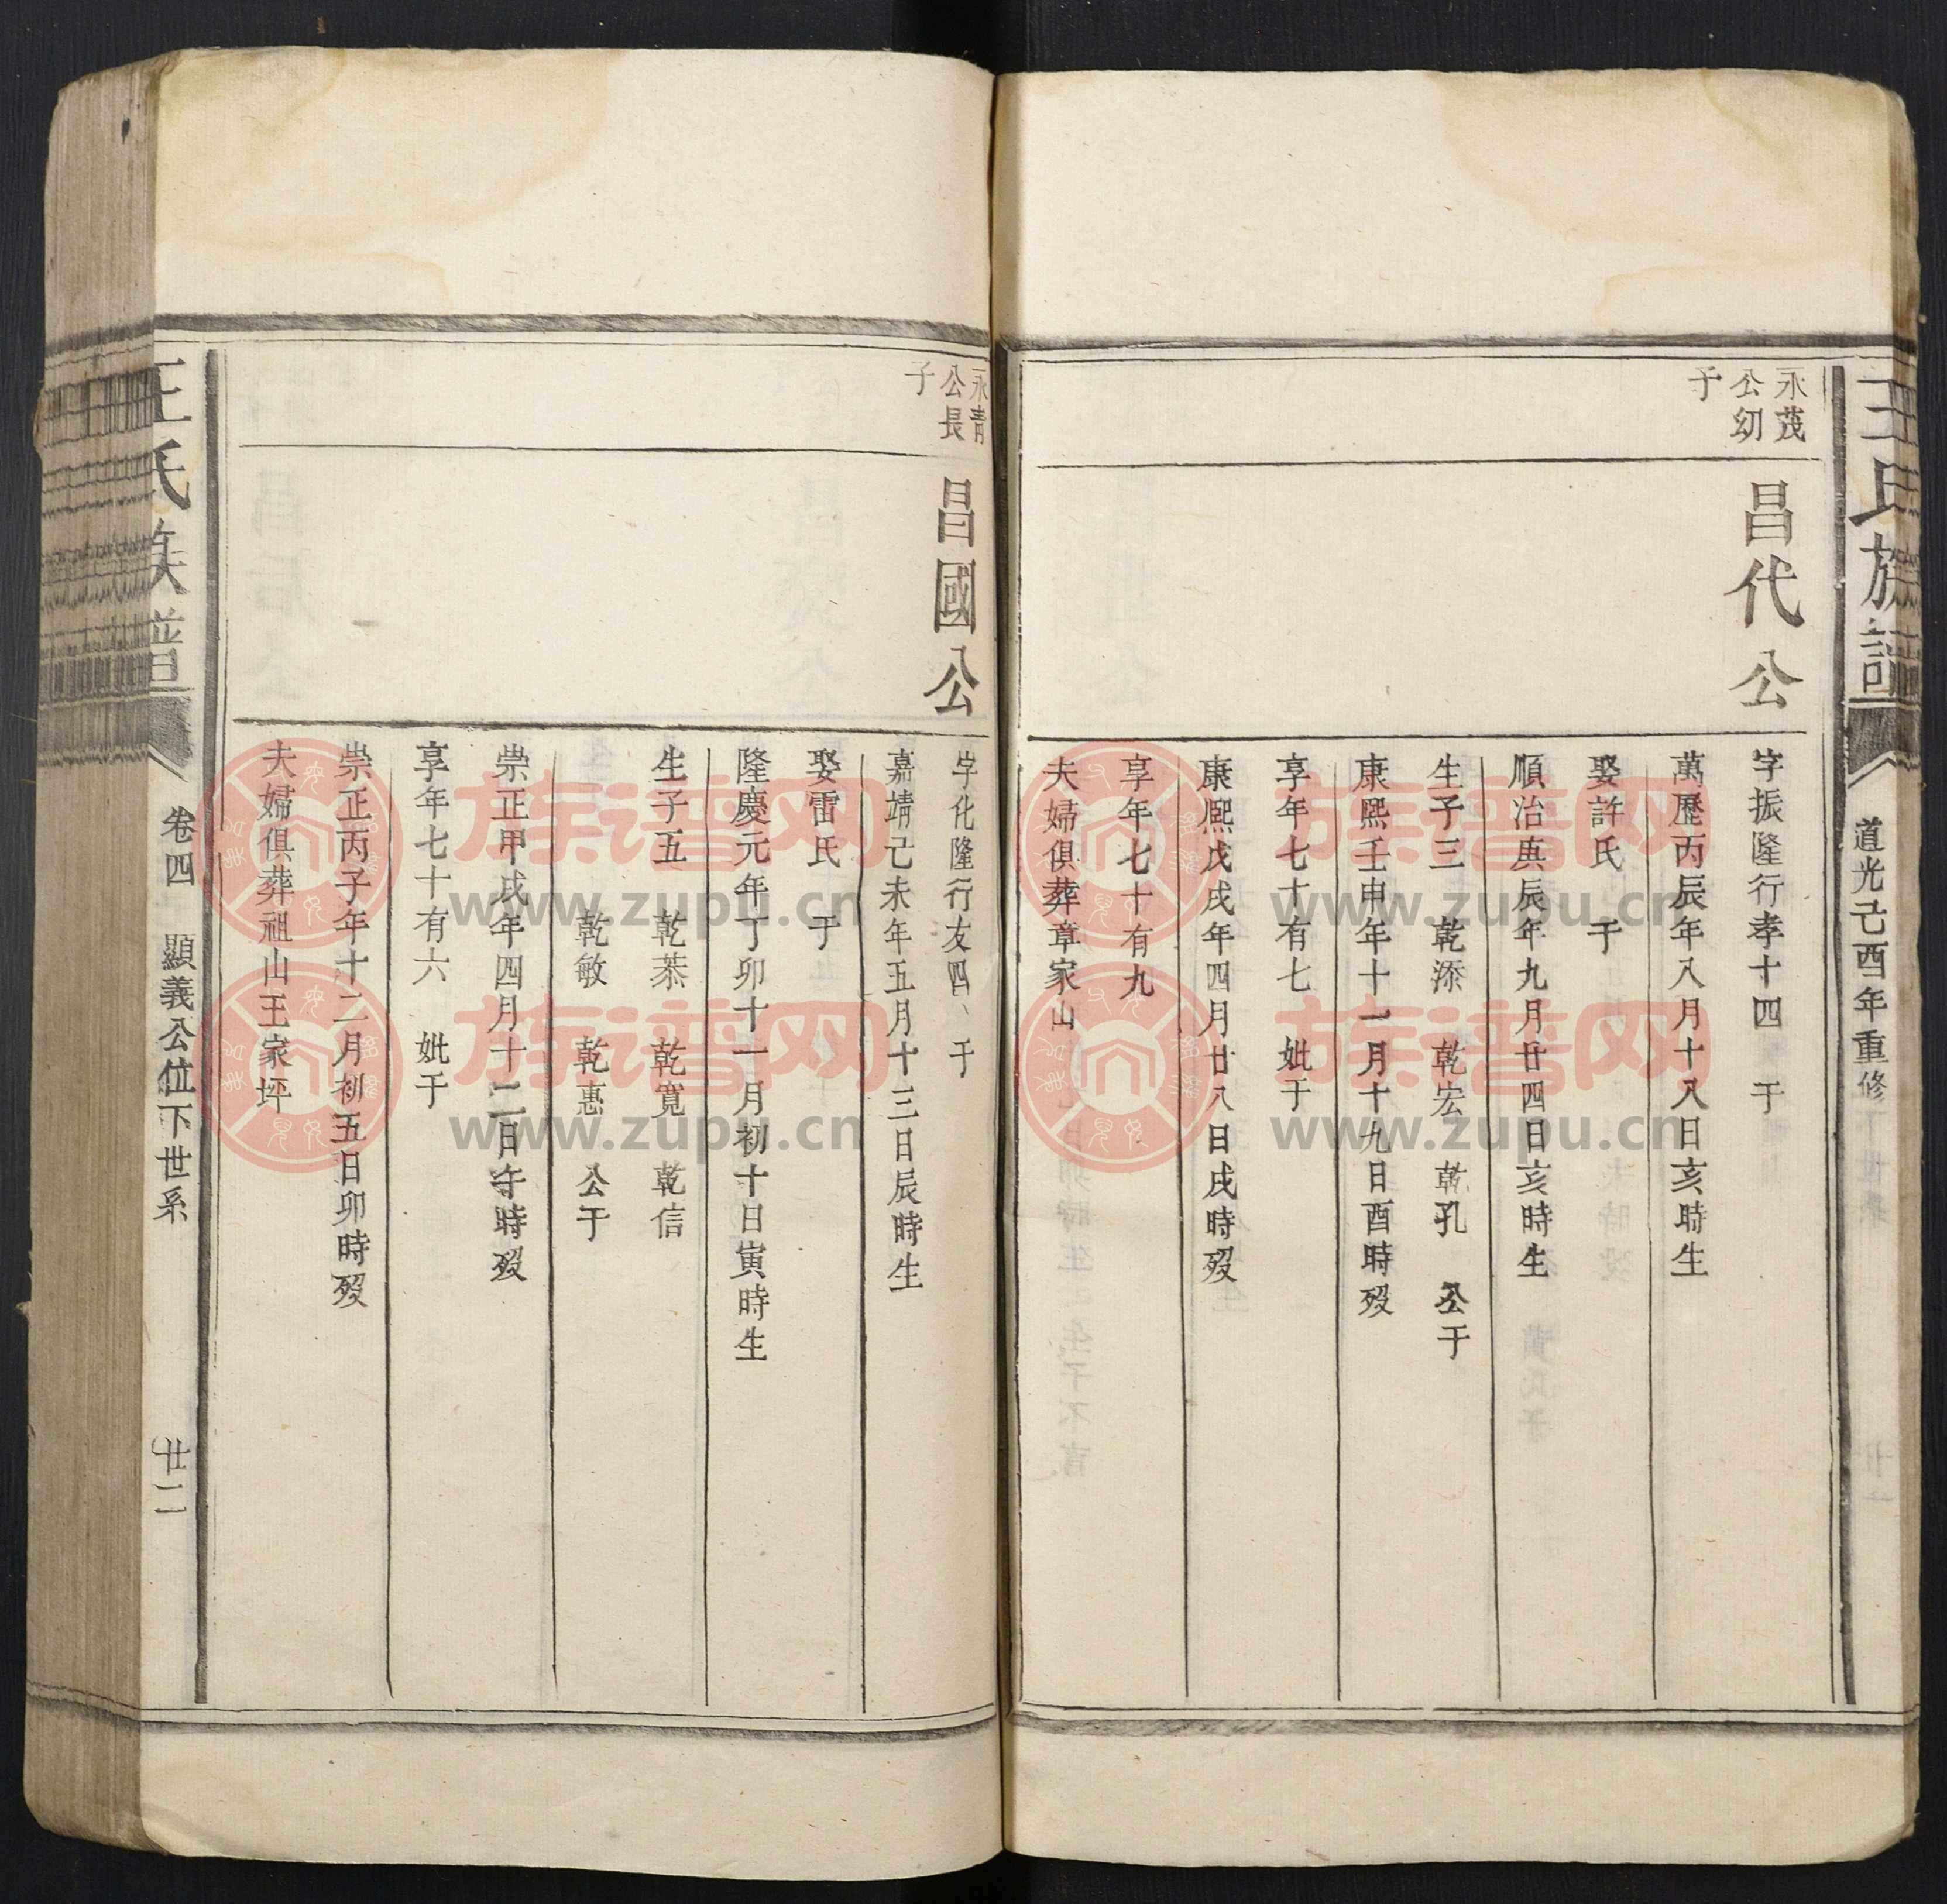 王氏族譜
道光己酉年重修
永茂
公幼
子
昌代公
字振隆行孝十四 于
萬歷丙辰年八月十八日亥時生
娶許氏 于
順治庚辰年九月廿四日亥時生
生子三 乾添 乾宏 乾孔 公于
康熙壬申年十一月十九日酉時歿
享年七十有七 妣于
康熙戊戌年四月廿八日戌時歿
享年七十有九
夫婦俱葬章家山
永青
公長
子
昌國公
字化隆行友四 于
嘉靖己未年五月十三日辰時生
娶雷氏 于
隆慶元年丁卯十一月初十日寅時生
生子五 乾恭 乾寬 乾信
乾敏 乾惠 公于
崇正甲戌年四月十二日午時歿
享年七十有六 妣于
崇正丙子年十二月初五日卯時歿
夫婦俱葬祖山王家坪
王氏族譜
卷四 顯義公位下世系
廿二
族谱网
www.zupu.cn
族谱网
www.zupu.cn
族谱网
www.zupu.cn
族谱网
www.zupu.cn